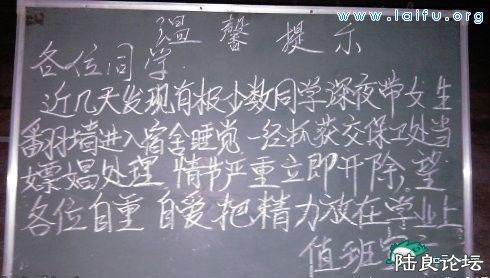 www.laifu.org
温馨提示
各位同学
近几天发现有极少数同学深夜带女生
翻墙进入宿舍睡觉 一经抓获交保卫处当
嫖娼处理 情节严重立即开除,望
各位自重 自爱把精力放在学业上
值班室
陆良论坛